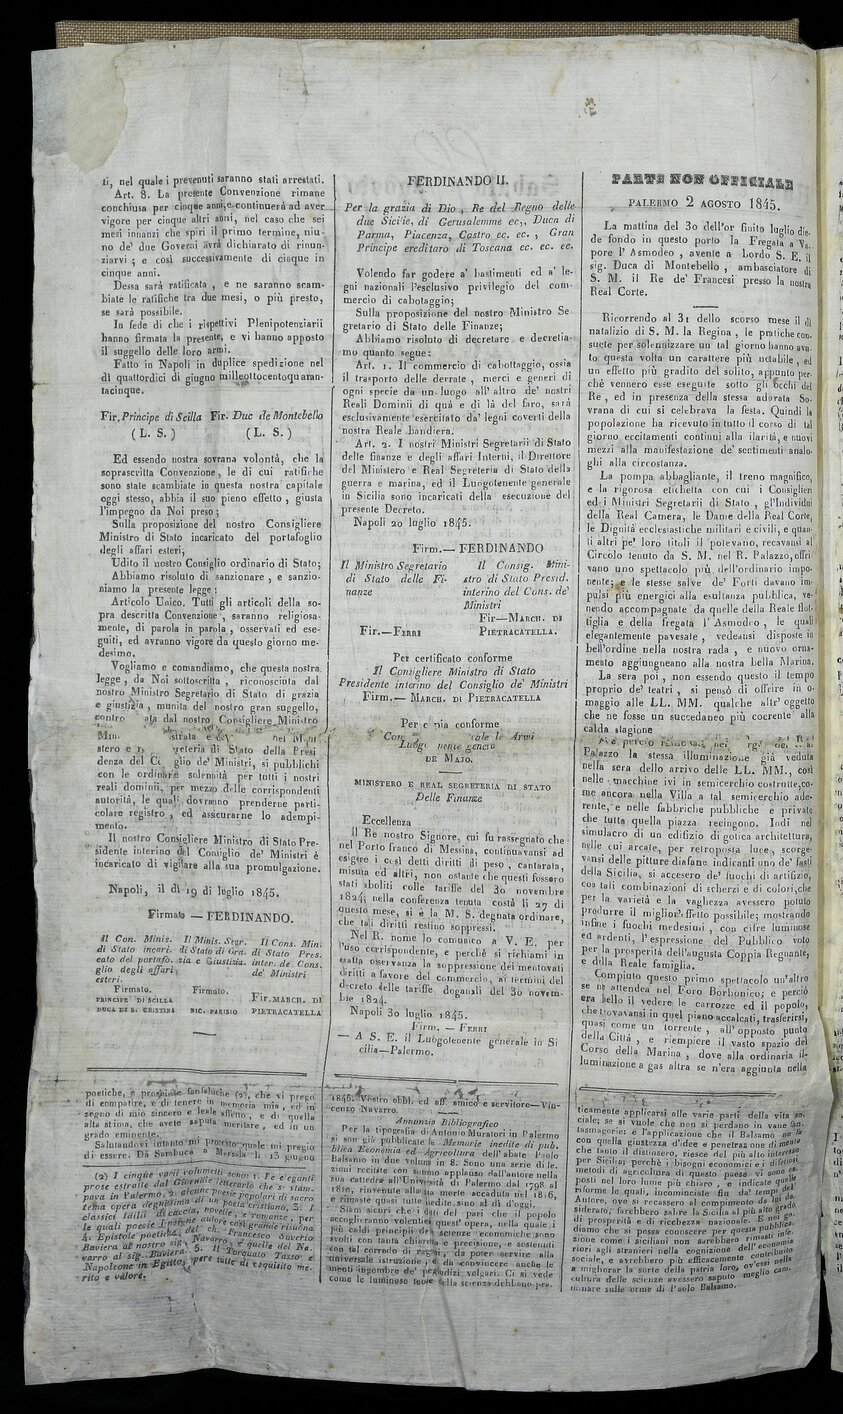 ti, nel quale i prevenuti saranno stati arrestati.
Art. 8. La presente Convenzione rimane
conchiusa per cinque anni, e continuerà ad aver
vigore per cinque altri anni, nel caso che sei
mesi innanzi che spiri il primo termine, niu-
no de' due Governi avrà dichiarato di rinun-
ziarvi ; e così successivamente di cinque in
cinque anni.
Dessa sarà ratificata , e ne saranno scam-
biate le ratifiche tra due mesi, o più presto,
se sarà possibile.
In fede di che i rispettivi Plenipotenziarii
hanno firmata la presente, e vi hanno apposto
il suggello delle loro armi.
Fatto in Napoli in duplice spedizione nel
dì quattordici di giugno milleottocentoquaran-
tacinque.
Fir. Principe di Scilla Fir. Duc de Montebello
( L. S. ) ( L. S. )
Ed essendo nostra sovrana volontà, che la
soprascritta Convenzione, le di cui ratifiche
sono state scambiate in questa nostra capitale
oggi stesso, abbia il suo pieno effetto , giusta
l'impegno da Noi preso ;
Sulla proposizione del nostro Consigliere
Ministro di Stato incaricato del portafoglio
degli affari esteri,
Udito il nostro Consiglio ordinario di Stato;
Abbiamo risoluto di sanzionare , e sanzio-
niamo la presente legge :
Articolo Unico. Tutti gli articoli della so-
pra descritta Convenzione , saranno religiosa-
mente, di parola in parola , osservati ed ese-
guiti, ed avranno vigore da questo giorno me-
desimo.
Vogliamo e comandiamo, che questa nostra
legge , da Noi sottoscritta , riconosciuta dal
nostro Ministro Segretario di Stato di grazia
e giustizia , munita del nostro gran suggello,
contro ata dal nostro Consigliere Ministro
stero e teria di Stato della Presi
denza del Co glio de' Ministri, si pubblichi
con le ordinarie solennità per tutti i nostri
reali dominii, per mezzo delle corrispondenti
autorità, le quali dovranno prenderne parti-
colare registro , ed assicurarne lo adempi-
mento.
Il nostro Consigliere Ministro di Stato Pre-
sidente interino del Consiglio de' Ministri è
incaricato di vigilare alla sua promulgazione.
Napoli, il dì 19 di luglio 1845.
Firmato — FERDINANDO.
Il Con. Minis.
di Stato incari.
cato del portafo.
glio degli affari
esteri.
Firmato.
PRINCIPE DI SCILLA
DUCA DI S. CRISTINA
Il Minis. Segr.
di Stato di Gra.
zia e Giustizia.
Firmato.
NIC. PARISIO
Il Cons. Min.
di Stato Pres.
inter. de Cons.
de' Ministri
Fir. MARCH. DI
PIETRACATELLA
FERDINANDO II.
Per la grazia di Dio , Re del Regno delle
due Sicilie, di Gerusalemme ec., Duca di
Parma, Piacenza, Castro ec. ec. , Gran
Principe ereditaro di Toscana ec. ec. ec.
Volendo far godere a' bastimenti ed a' le-
gni nazionali l'esclusivo privilegio del com-
mercio di cabotaggio;
Sulla proposizione del nostro Ministro Se
gretario di Stato delle Finanze;
Abbiamo risoluto di decretare e decretia-
mo quanto segue :
Art. 1. Il commercio di cabottaggio, ossia
il trasporto delle derrate , merci e generi di
ogni specie da un luogo all' altro de' nostri
Reali Dominii di quà e di là del faro, sarà
esclusivamente esercitato da' legni coverti della
nostra Reale bandiera.
Art. 2. I nostri Ministri Segretarii di Stato
delle finanze e degli affari Interni, il Direttore
del Ministero e Real Segreteria di Stato della
guerra e marina, ed il Luogotenente generale
in Sicilia sono incaricati della esecuzione del
presente Decreto.
Napoli 20 luglio 1845.
Firm.— FERDINANDO
Il Ministro Segretario
di Stato delle Fi-
nanze
Fir.—FERRI
Il Consig. Mini-
stro di Stato Presid.
interino del Cons. de'
Ministri
Fir—MARCH. DI
PIETRACATELLA.
Per certificato conforme
Il Consigliere Ministro di Stato
Presidente interino del Consiglio de' Ministri
Firm.— MARCH. DI PIETRACATELLA
Per c nia conforme
DE MAJO.
MINISTERO E REAL SEGRETERIA DI STATO
Delle Finanze
Eccellenza
Il Re nostro Signore, cui fu rassegnato che
nel Porto franco di Messina, continuavansi ad
esigere i così detti diritti di peso , cantarata,
misura ed altri, non ostante che questi fossero
stati aboliti colle tariffe del 30 novembre
1824; nella conferenza tenuta costà li 27 di
questo mese, si è la M. S. degnata ordinare,
che tali diritti restino soppressi.
Nel R. nome lo comunico a V. E. per
l'uso corrispondente, e perchè si richiami in
esatta osservanza la soppressione dei mentovati
diritti a favore del commercio, ai termini del
decreto delle tariffe doganali del 30 novem-
bre 1824.
Napoli 30 luglio 1845.
Firm. — FERRI
— A S. E. il Luogotenente generale in Si
cilia—Palermo.
PARTE NON OFFICIALE
PALERMO 2 AGOSTO 1845.
La mattina del 30 dell'or finito luglio die-
de fondo in questo porto la Fregata a Va-
pore l' Asmodeo , avente a bordo S. E. il
sig. Duca di Montebello , ambasciatore di
S. M. il Re de' Francesi presso la nostra
Real Corte.
Ricorrendo al 31 dello scorso mese il dì
natalizio di S. M. la Regina , le pratiche con-
suete per solennizzare un tal giorno hanno avu-
to questa volta un carattere più notabile , ed
un effetto più gradito del solito, appunto per-
chè vennero esse eseguite sotto gli occhi del
Re , ed in presenza della stessa adorata So-
vrana di cui si celebrava la festa. Quindi la
popolazione ha ricevuto in tutto il corso di tal
giorno eccitamenti continui alla ilarità, e nuovi
mezzi alla manifestazione de' sentimenti analo-
ghi alla circostanza.
La pompa abbagliante, il treno magnifico,
e la rigorosa etichetta con cui i Consiglieri
ed i Ministri Segretarii di Stato , gl'Individui
della Real Camera, le Dame della Real Corte,
le Dignità ecclesiastiche militari e civili, e quan-
ti altri pe' loro titoli il potevano, recavansi al
Circolo tenuto da S. M. nel R. Palazzo, offri-
vano uno spettacolo più dell'ordinario impo-
nente; e le stesse salve de' Forti davano im-
pulsi più energici alla esultanza pubblica, ve-
nendo accompagnate da quelle della Reale flot-
tiglia e della fregata l' Asmodeo , le quali
elegantemente pavesate , vedeansi disposte in
bell'ordine nella nostra rada , e nuovo orna-
mento aggiungneano alla nostra bella Marina.
La sera poi , non essendo questo il tempo
proprio de' teatri , si pensò di offerire in o-
maggio alle LL. MM. qualche altr' oggetto
che ne fosse un succedaneo più coerente alla
calda stagione
Palazzo la stessa illuminazione già veduta
nella sera dello arrivo delle LL. MM., così
nelle macchine ivi in semicerchio costrutte, co-
me ancora nella Villa a tal semicerchio ade-
rente, e nelle fabbriche pubbliche e private
che tutta quella piazza recingono. Indi nel
simulacro di un edifizio di gotica architettura,
nelle cui arcate, per retroposta luce, scorge-
vansi delle pitture diafane indicanti uno de' fasti
della Sicilia, si accesero de' fuochi di artifizio,
con tali combinazioni di scherzi e di colori, che
per la varietà e la vaghezza avessero potuto
produrre il miglior' effetto possibile; mostrando
infine i fuochi medesimi , con cifre luminose
ed ardenti, l'espressione del Pubblico voto
per la prosperità dell'augusta Coppia Regnante,
e della Reale famiglia.
Compiuto questo primo spettacolo un'altro
se ne attendea nel Foro Borbonico; e perciò
era bello il vedere le carrozze ed il popolo,
che trovavansi in quel piano accalcati, trasferirsi,
quasi come un torrente , all' opposto punto
della Città , e riempiere il vasto spazio del
Corso della Marina , dove alla ordinaria il-
luminazione a gas altra se n'era aggiunta nella
poetiche, e prosaiche fanfaluche (2), che vi prego
di compatire, e di tenere in memoria mia , ed in
segno di mio sincero e leale affetto , e di quella
alta stima, che avete saputa meritare , ed in un
grado eminente.
Salutandovi intanto mi protesto quale mi pregio
di essere. Da Sambuca a Marsala li 13 giugno
(2) I cinque varii volumetti sono: 1. Le eleganti
prose estratte dal Giornale letterario che si stam-
pava in Palermo, 2. alcune poesie popolari di sacro
tema opera degnissima di un poeta cristiano, 3. I
classici Idilii di caccia, novelle, e romanze , per
le quali poesie l'insigne autore così grande risuona
4. Epistole poetiche del ch. Francesco Saverio
Baviera al nostro sig. Navarro , e quelle del Na-
varro al sig. Baviera. 5. Il Torquato Tasso e
Napoleone in Egitto, opere tutte di esquisito me-
rito e valore.
1845. Vostro obbl. ed aff. amico e servitore—Vin-
cenzo Navarro.
Annunzio Bibliografico
Per la tipografia di Antonio Muratori in Palermo
si son già pubblicate la Memorie inedite di pub.
blica Economia ed Agricoltura dell'abate Paolo
Balsamo in due volumi in 8. Sono una serie di le-
zioni recitate con sommo applauso dall'autore nella
sua cattedra all'Università di Palermo dal 1798 al
1810, rinvenute alla di lui morte accaduta nel 1816,
e rimaste quasi tutte inedite sino al dì d'oggi.
Siam sicuri che i dotti del pari che il popolo
accoglieranno volentieri quest'opera, nella quale i
più caldi principii delle scienze economiche sono
svolti con tanta chiarezza e precisione, e sostenuti
con tal corredo di ragioni, da poter servire alla
universale istruzione , e da convincere anche le
menti ingombre de' pregiudizi volgari. Ci si vede
come le luminose teorie della scienza debbano pra-
ticamente applicarsi alle varie parti della vita so-
ciale; se si vuole che non si perdano in vane fan.
tasmagorie: e l'applicazione che il Balsamo ne fa
con quella giustezza d'idee e penetrazione di mente
che tanto il distinsero, riesce del più alto interesse
per Sicilia; perchè i bisogni economici e i difettosi
metodi di agricoltura di questo paese vi sono es-
posti nel loro lume più chiaro , e indicate quelle
riforme le quali, incominciate fin da' tempi dell'
Autore, ove si recassero al compimento da lui de-
siderato, farebbero salire la Sicilia al più alto grado
di prosperità e di ricchezza nazionale. E noi go-
diamo che si possa conoscere per questa pubblica-
zione come i siciliani non sarebbero rimasti infe.
riori agli stranieri nella cognizione dell'economia
sociale, e avrebbero più efficacemente contribuito
a migliorar la sorte della patria loro, ov'essi nella
cultura delle scienze avessero saputo meglio cam.
minare sulle orme di Paolo Balsamo.